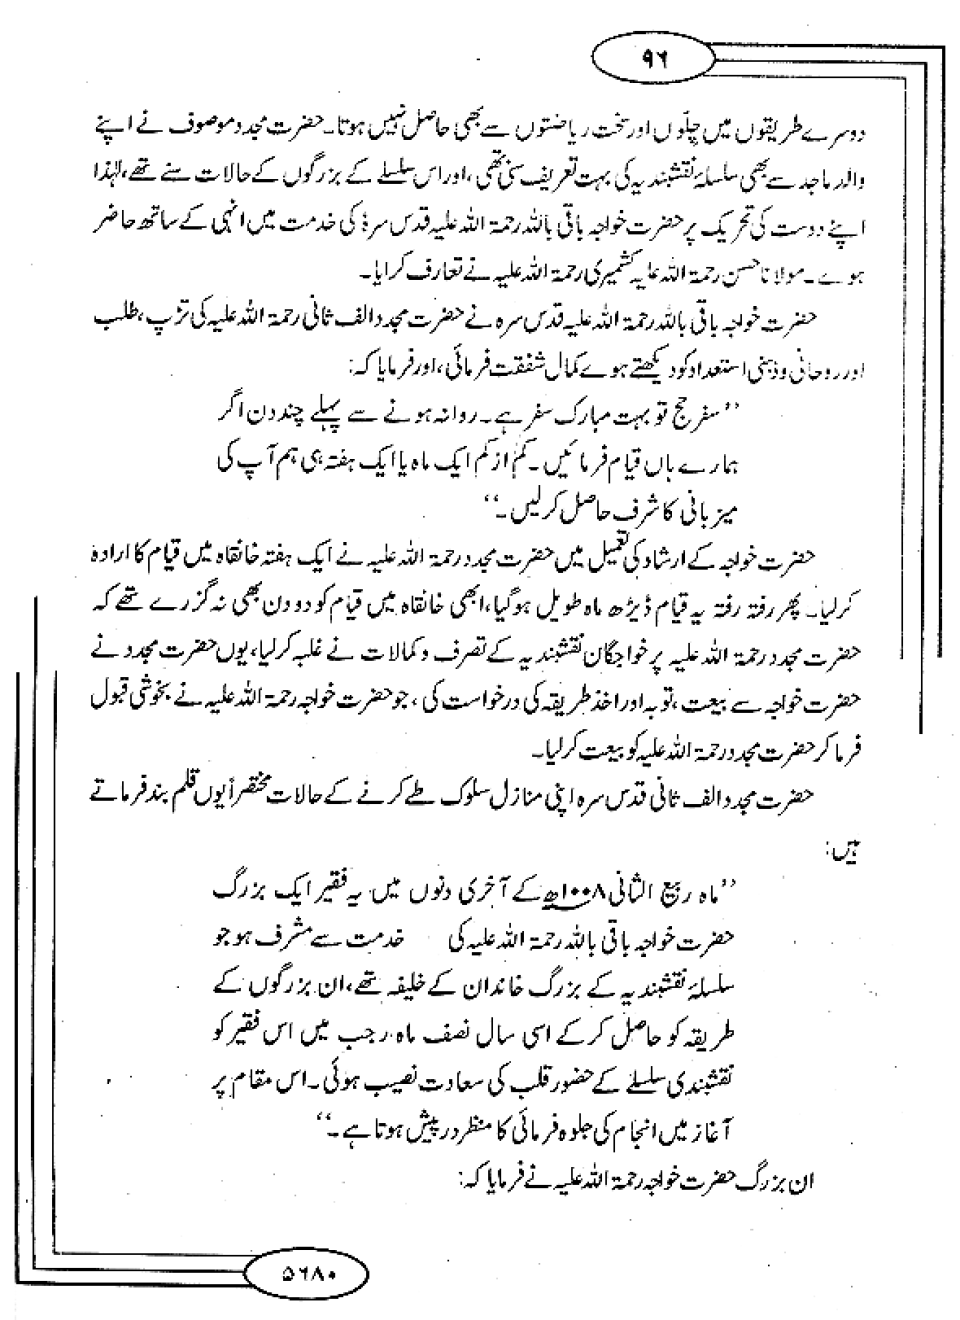 ۹۶
دوسرے طریقوں میں چلّوں اور سخت ریاضتوں سے بھی حاصل نہیں ہوتا۔ حضرت مجدد موصوف نے اپنے
والد ماجد سے بھی سلسلۂ نقشبندیہ کی بہت تعریف سنی تھی، اور اس سلسلے کے بزرگوں کے حالات سنے تھے، لہٰذا
اپنے دوست کی تحریک پر حضرت خواجہ باقی باللہ رحمۃ اللہ علیہ قدس سرہٗ کی خدمت میں انہی کے ساتھ حاضر
ہوے۔ مولانا حسن رحمۃ اللہ علیہ کشمیری رحمۃ اللہ علیہ نے تعارف کرایا۔
حضرت خواجہ باقی باللہ رحمۃ اللہ علیہ قدس سرہ نے حضرت مجدد الف ثانی رحمۃ اللہ علیہ کی تڑپ، طلب
اور روحانی و ذہنی استعداد کو دیکھتے ہوے کمال شفقت فرمائی، اور فرمایا کہ:
”سفر حج تو بہت مبارک سفر ہے۔ روانہ ہونے سے پہلے چند دن اگر
ہمارے ہاں قیام فرمائیں۔ کم از کم ایک ماہ یا ایک ہفتہ ہی ہم آپ کی
میزبانی کا شرف حاصل کرلیں۔“
حضرت خواجہ کے ارشاد کی تعمیل میں حضرت مجدد رحمۃ اللہ علیہ نے ایک ہفتہ خانقاہ میں قیام کا ارادہ
کرلیا۔ پھر رفتہ رفتہ یہ قیام ڈیڑھ ماہ طویل ہوگیا، ابھی خانقاہ میں قیام کو دو دن بھی نہ گزرے تھے کہ
حضرت مجدد رحمۃ اللہ علیہ پر خواجگان نقشبندیہ کے تصرف و کمالات نے غلبہ کرلیا، یوں حضرت مجدد نے
حضرت خواجہ سے بیعت، توبہ اور اخذ طریقہ کی درخواست کی، جو حضرت خواجہ رحمۃ اللہ علیہ نے بخوشی قبول
فرما کر حضرت مجدد رحمۃ اللہ علیہ کو بیعت کرلیا۔
حضرت مجدد الف ثانی قدس سرہ اپنی منازل سلوک طے کرنے کے حالات مختصراً یوں قلم بند فرماتے
ہیں:
”ماہ ربیع الثانی ۱۰۰۸ھ کے آخری دنوں میں یہ فقیر ایک بزرگ
حضرت خواجہ باقی باللہ رحمۃ اللہ علیہ کی خدمت سے مشرف ہو جو
سلسلۂ نقشبندیہ کے بزرگ خاندان کے خلیفہ تھے، ان بزرگوں کے
طریقہ کو حاصل کر کے اسی سال نصف ماہ رجب میں اس فقیر کو
نقشبندی سلسلے کے حضور قلب کی سعادت نصیب ہوئی۔ اس مقام پر
آغاز میں انجام کی جلوہ فرمائی کا منظر درپیش ہوتا ہے۔“
ان بزرگ حضرت خواجہ رحمۃ اللہ علیہ نے فرمایا کہ:
۵۶۸۰